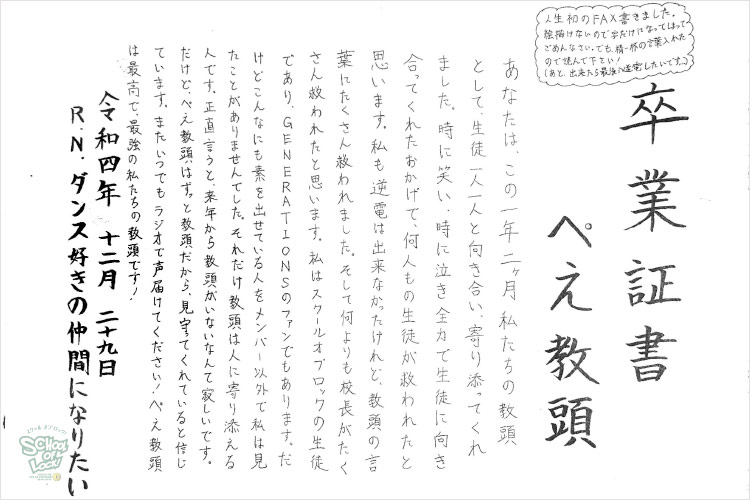 人生初のFAX書きました。
絵描けないので字だけになってしまって
ごめんなさい。でも、精一杯の言葉入れた
ので読んで下さい!
(あと、出来たら最後に逆電したいです。)
卒業証書
ぺえ教頭
あなたは、この一年二ヶ月私たちの教頭
として、生徒一人一人と向き合い、寄り添ってくれ
ました。時に笑い、時に泣き全力で生徒に向き
合ってくれたおかげで、何人もの生徒が救われたと
思います。私も逆電は出来なかったけれど、教頭の言
葉にたくさん救われました。そして何よりも校長がたく
さん救われたと思います。私はスクールオブロックの生徒
であり、GENERATIONSのファンでもあります。だ
けどこんなにも素を出せている人をメンバー以外で私は見
たことがありませんでした。それだけ教頭は人に寄り添える
人です。正直言うと、来年から教頭がいないなんて寂しいです。
だけど、ぺえ教頭はずっと教頭だから、見守ってくれていると信じ
ています。またいつでもラジオで声届けてください!ぺえ教頭
は最高で、最強の私たちの教頭です!
令和四年 十二月 二十九日
R.N.ダンス好きの仲間になりたい
スクールオブロック!
SCHOOL
OF
LOCK!